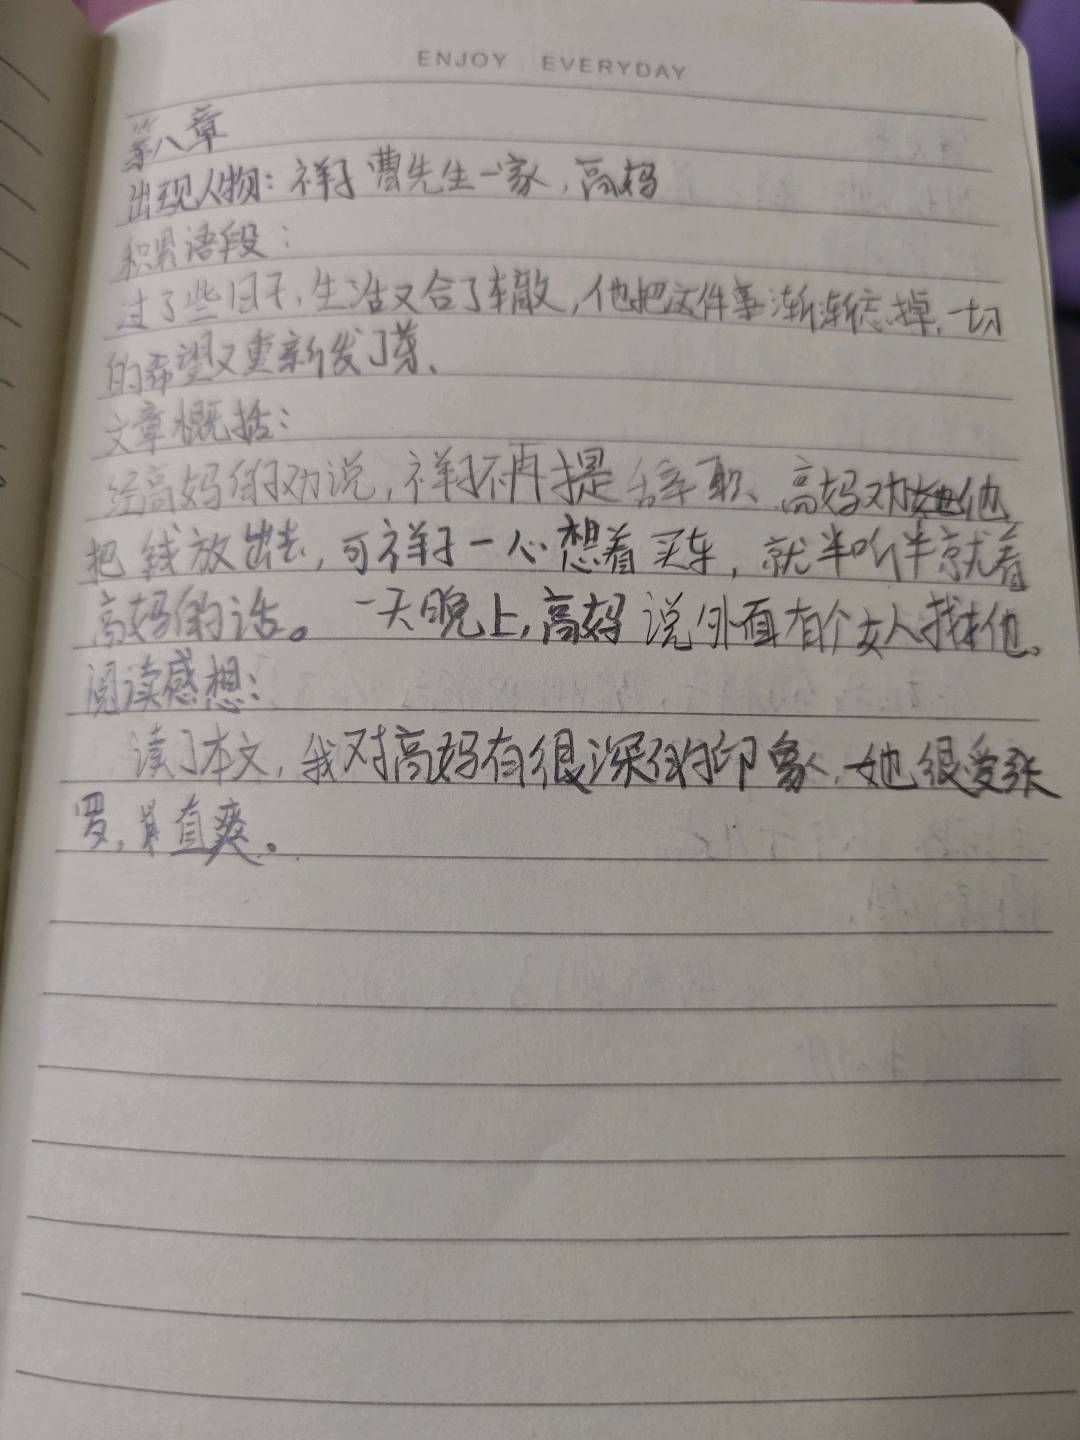 ENJOY EVERYDAY
第八章
出现人物：祥子 曹先生一家，高妈
积累语段：
过了些日子，生活又合了辙，他把这件事渐渐忘掉，一切
的希望又重新发了芽、
文章概括：
经高妈的劝说，祥子不再提辞职、高妈劝他
把钱放出去，可祥子一心想着买车，就半听半就着
高妈的话。 一天晚上，高妈说外面有个女人找他。
阅读感想：
读了本文，我对高妈有很深的印象，她很爱张
罗，直爽。